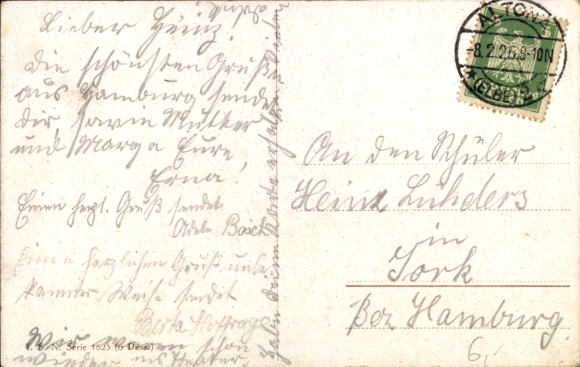 Lieber Heinz!
Die schönsten Grüße
aus Hamburg sendet
Dir, sowie Mutter
und Marga Eure
Erna!
Einen herzl. Gruß sendet
Adele Bock
Einen herzlichen Gruß unbe
kannter Weise sendet
Berta
Wir waren schon
wieder ins Theater.
Karte
ALTONA
-8.2.26.9-10N
An den Schüler
Heinz Lühders
in
Jork
Bez Hamburg.
6,
Serie 1825 (6 Dess.)